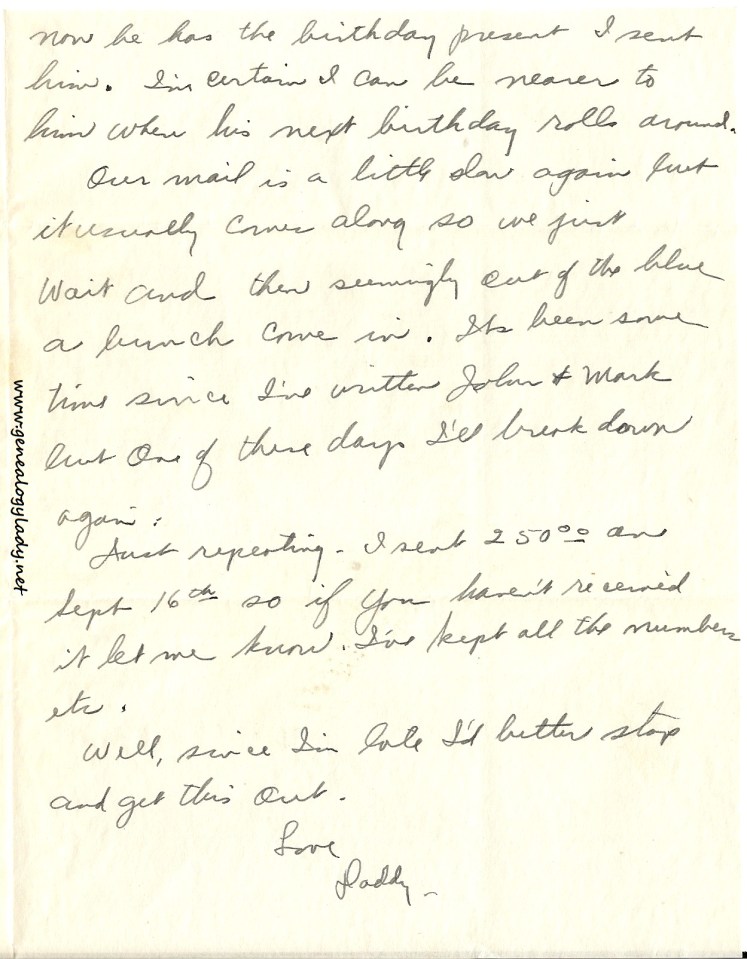 now he has the birthday present I sent
him. I'm certain I can be nearer to
him when his next birthday rolls around.
Our mail is a little slow again but
it usually comes along so we just
wait and then seemingly out of the blue
a bunch come in. Its been some
time since I've written John & Mark
but one of these days I'll break down
again.
Just repeating - I sent 250⁰⁰ on
Sept 16th so if you haven't received
it let me know. I've kept all the numbers
etc.
Well, since I'm late I'd better stop
and get this out.
Love
Daddy -
www.genealogylady.net